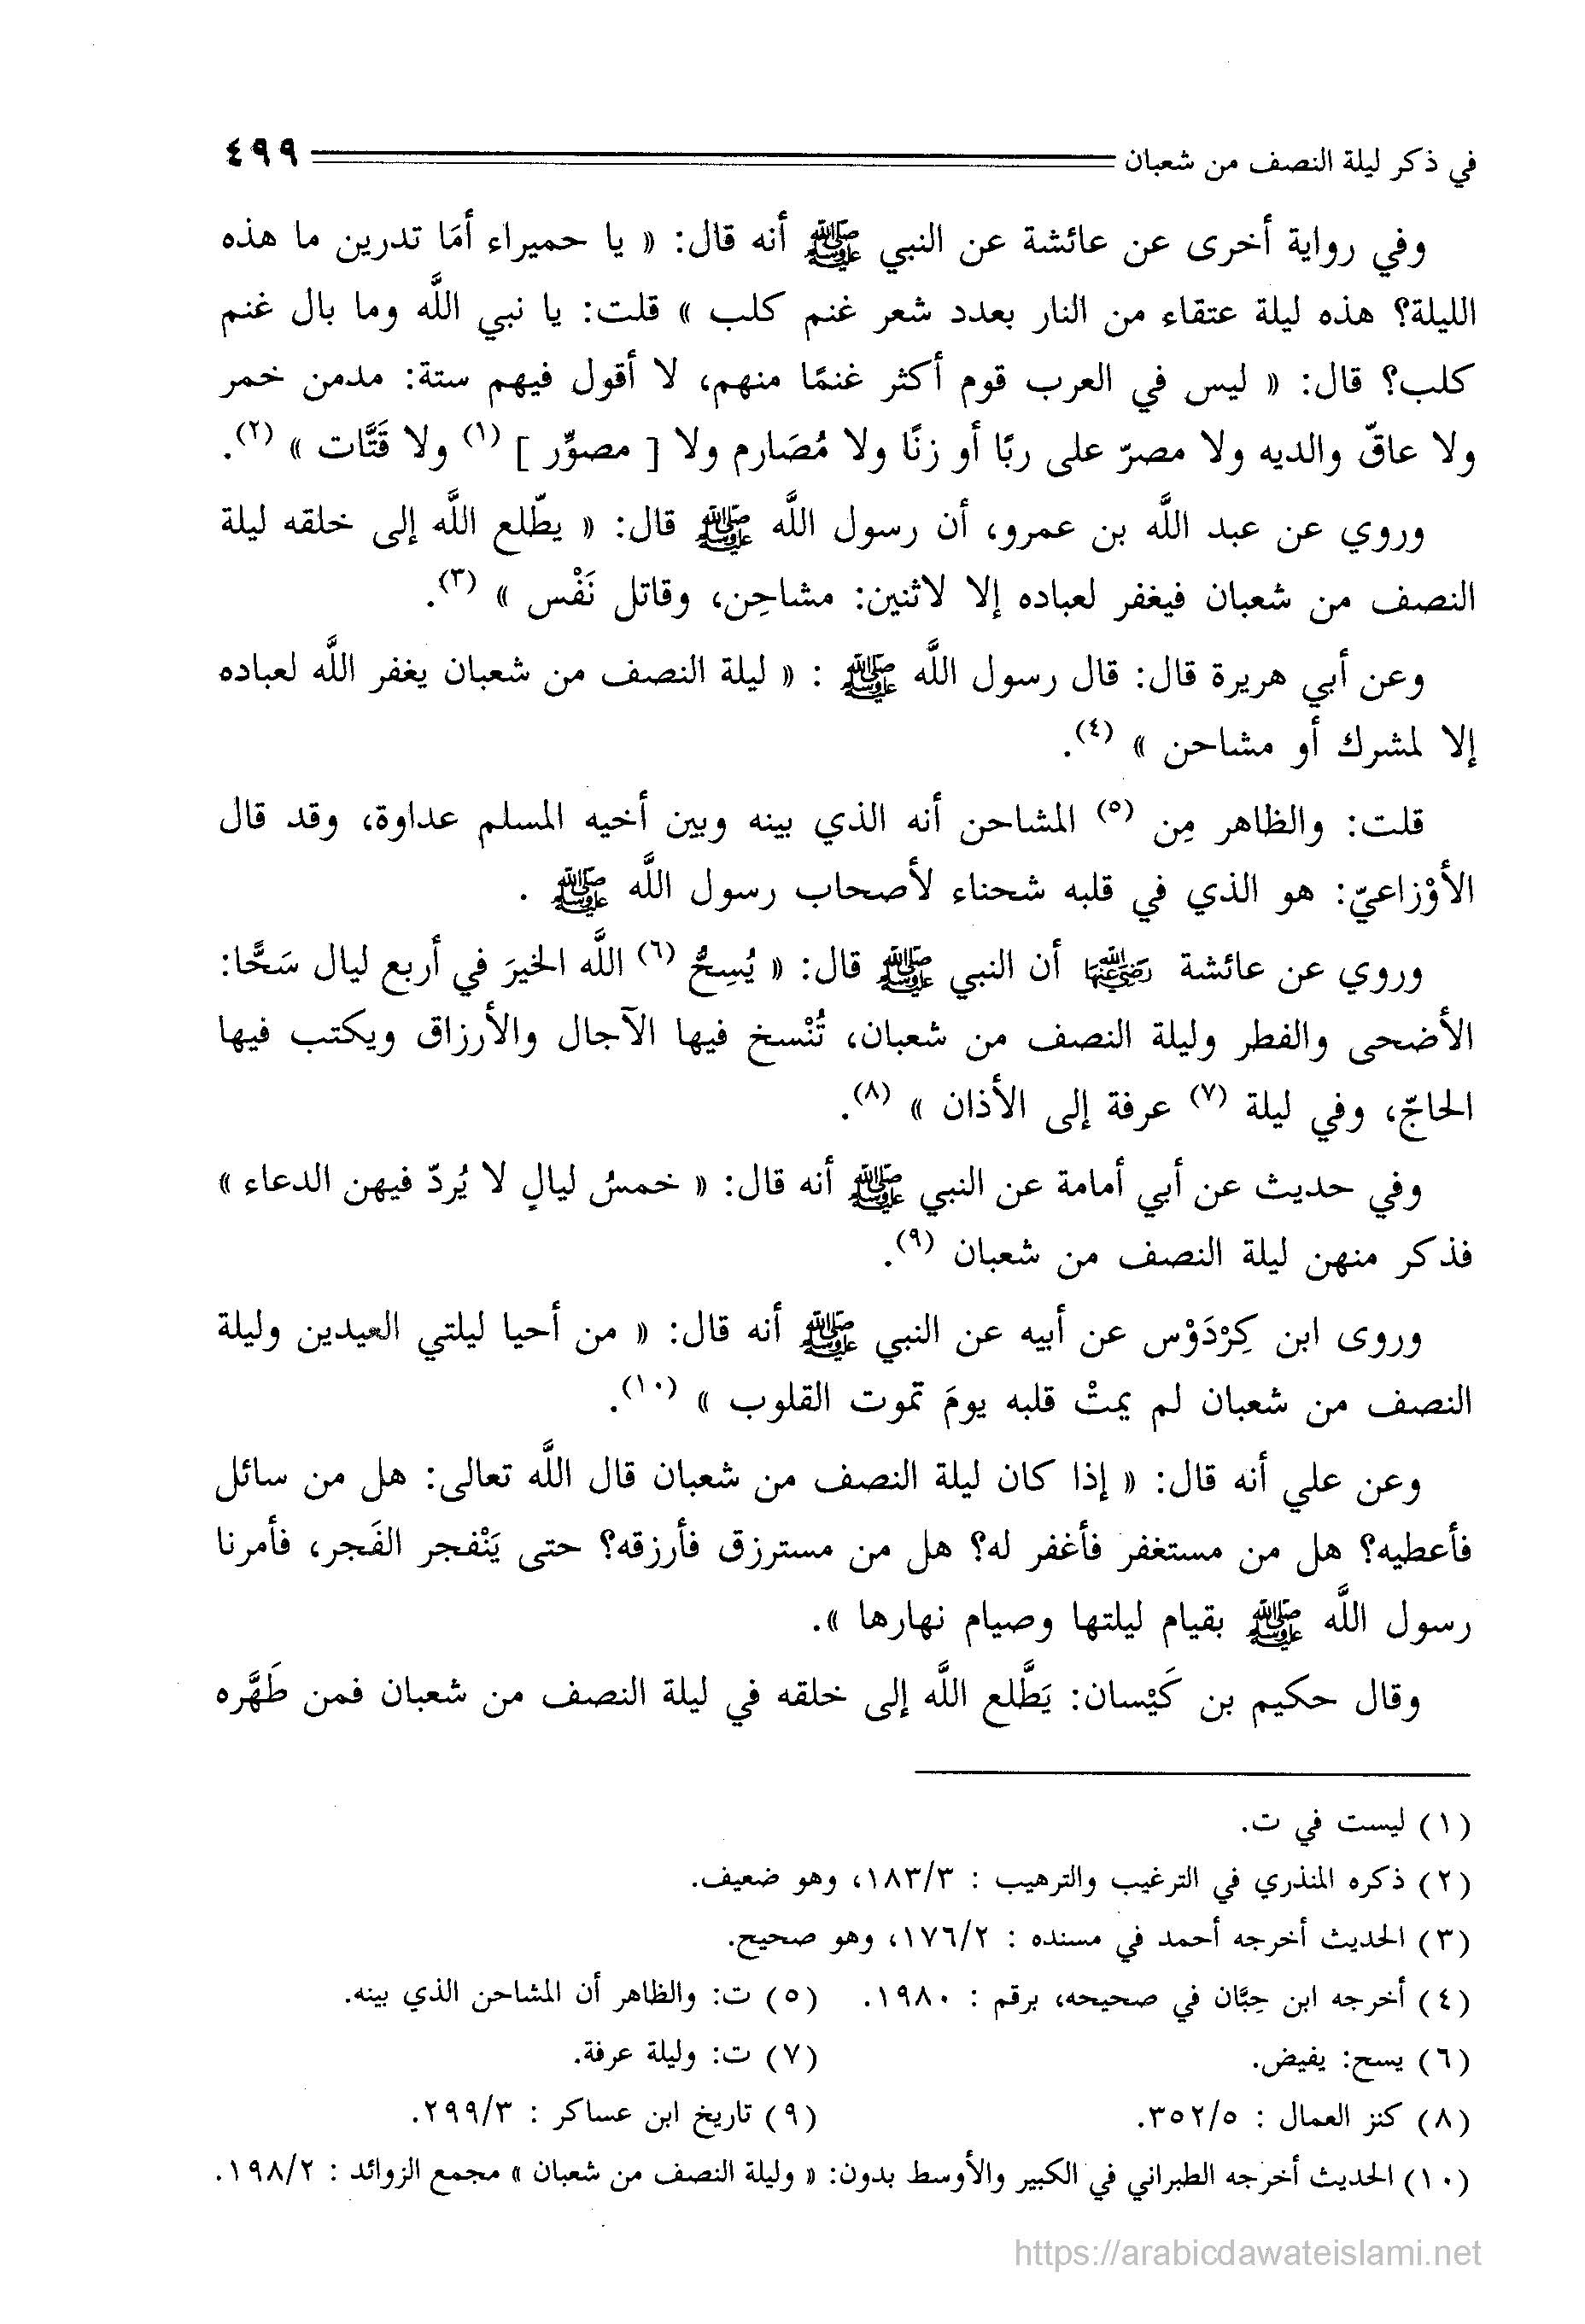 في ذكر ليلة النصف من شعبان ٤٩٩
وفي رواية أخرى عن عائشة عن النبي ﷺ أنه قال: « يا حميراء أمَا تدرين ما هذه
الليلة؟ هذه ليلة عتقاء من النار بعدد شعر غنم كلب » قلت: يا نبي اللَّه وما بال غنم
كلب؟ قال: « ليس في العرب قوم أكثر غنمًا منهم، لا أقول فيهم ستة: مدمن خمر
ولا عاقّ والديه ولا مصرّ على ربًا أو زنًا ولا مُصَارم ولا [ مصوِّر ] (١) ولا قَتَّات » (٢).
وروي عن عبد اللَّه بن عمرو، أن رسول اللَّه ﷺ قال: « يطّلع اللَّه إلى خلقه ليلة
النصف من شعبان فيغفر لعباده إلا لاثنين: مشاحِن، وقاتل نَفْس » (٣).
وعن أبي هريرة قال: قال رسول اللَّه ﷺ : « ليلة النصف من شعبان يغفر اللَّه لعباده
إلا لمشرك أو مشاحن » (٤).
قلت: والظاهر مِن (٥) المشاحن أنه الذي بينه وبين أخيه المسلم عداوة، وقد قال
الأوْزاعيّ: هو الذي في قلبه شحناء لأصحاب رسول اللَّه ﷺ .
وروي عن عائشة رَضِيَ اللهُ عَنْهَا أن النبي ﷺ قال: « يُسِحُّ (٦) اللَّه الخيرَ في أربع ليال سَحًّا:
الأضحى والفطر وليلة النصف من شعبان، تُنْسخ فيها الآجال والأرزاق ويكتب فيها
الحاجّ، وفي ليلة (٧) عرفة إلى الأذان » (٨).
وفي حديث عن أبي أمامة عن النبي ﷺ أنه قال: « خمسُ ليالٍ لا يُردّ فيهن الدعاء »
فذكر منهن ليلة النصف من شعبان (٩).
وروى ابن كِرْدَوْس عن أبيه عن النبي ﷺ أنه قال: « من أحيا ليلتي العيدين وليلة
النصف من شعبان لم يمتْ قلبه يومَ تموت القلوب » (١٠).
وعن علي أنه قال: « إذا كان ليلة النصف من شعبان قال اللَّه تعالى: هل من سائل
فأعطيه؟ هل من مستغفر فأغفر له؟ هل من مسترزق فأرزقه؟ حتى يَنْفجر الفَجر، فأمرنا
رسول اللَّه ﷺ بقيام ليلتها وصيام نهارها ».
وقال حكيم بن كَيْسان: يَطَّلع اللَّه إلى خلقه في ليلة النصف من شعبان فمن طَهَّره
(١) ليست في ت.
(٢) ذكره المنذري في الترغيب والترهيب : ١٨٣/٣، وهو ضعيف.
(٣) الحديث أخرجه أحمد في مسنده : ١٧٦/٢، وهو صحيح.
(٤) أخرجه ابن حِبَّان في صحيحه، برقم : ١٩٨٠. (٥) ت: والظاهر أن المشاحن الذي بينه.
(٦) يسح: يفيض. (٧) ت: وليلة عرفة.
(٨) كنز العمال : ٣٥٢/٥. (٩) تاريخ ابن عساكر : ٢٩٩/٣.
(١٠) الحديث أخرجه الطبراني في الكبير والأوسط بدون: « وليلة النصف من شعبان » مجمع الزوائد : ١٩٨/٢.
https://arabicdawateislami.net